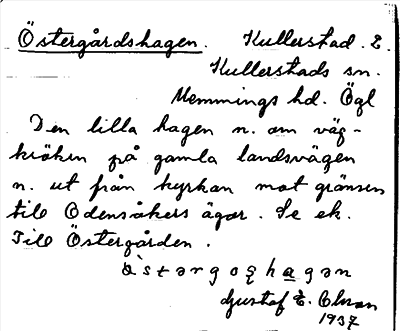 Östergårdshagen. Kullerstad. E.
Kullerstads sn.
Memmings hd. Ögl
Den lilla hagen n. om väg-
kröken på gamla landsvägen
n. ut från kyrkan mot gränsen
till Odensåkers ägor. Se ek.
Till Östergården.
Gustaf E. Olsson
1937